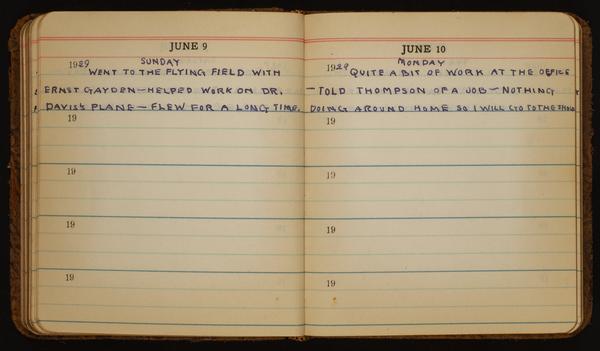 JUNE 9
SUNDAY
1929
WENT TO THE FLYING FIELD WITH
ERNST GAYDEN—HELPED WORK ON DR.
DAVIS'S PLANE—FLEW FOR A LONG TIME.
19
19
19
19
JUNE 10
MONDAY
1929
QUITE A BIT OF WORK AT THE OFFICE
—TOLD THOMPSON OF A JOB—NOTHING
DOING AROUND HOME SO I WILL GO TO THE
19
19
19
19